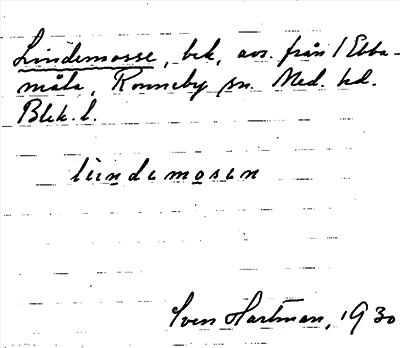 Lindemosse, bek, avs. från 1 Ebba-
måla, Ronneby sn. Med. hd.
Blek. l.
leindemosen
Sven Hartman, 1930